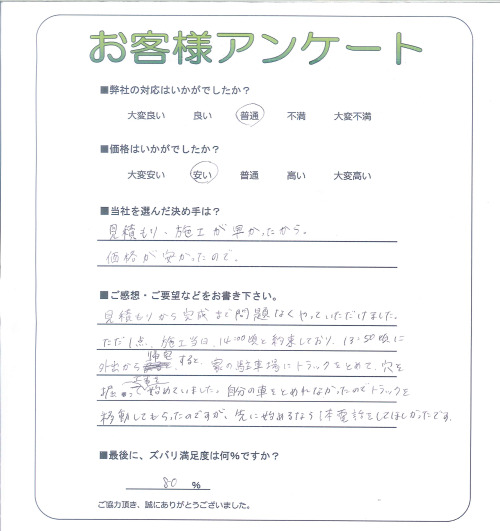 お客様アンケート
■弊社の対応はいかがでしたか？
大変良い 良い 普通 不満 大変不満
■価格はいかがでしたか？
大変安い 安い 普通 高い 大変高い
■当社を選んだ決め手は？
見積もり・施工が早かったから。
価格が安かったので。
■ご感想・ご要望などをお書き下さい。
見積もりから完成まで問題なくやっていただけました。
ただ1点、施工当日、14:00頃と約束しており、13:50頃に
外出から帰宅すると、家の駐車場にトラックをとめて、穴を
掘って始めていました。自分の車をとめれなかったのでトラックを
移動してもらったのですが、先に始めるなら電話をしてほしかったです。
■最後に、ズバリ満足度は何%ですか？
80 %
ご協力頂き、誠にありがとうございました。